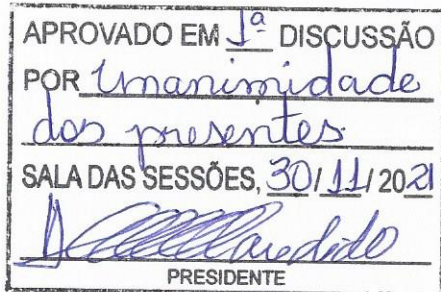 APROVADO EM 1ª DISCUSSÃO
POR Unanimidade
dos presentes
SALA DAS SESSÕES, 30/11/2021
PRESIDENTE